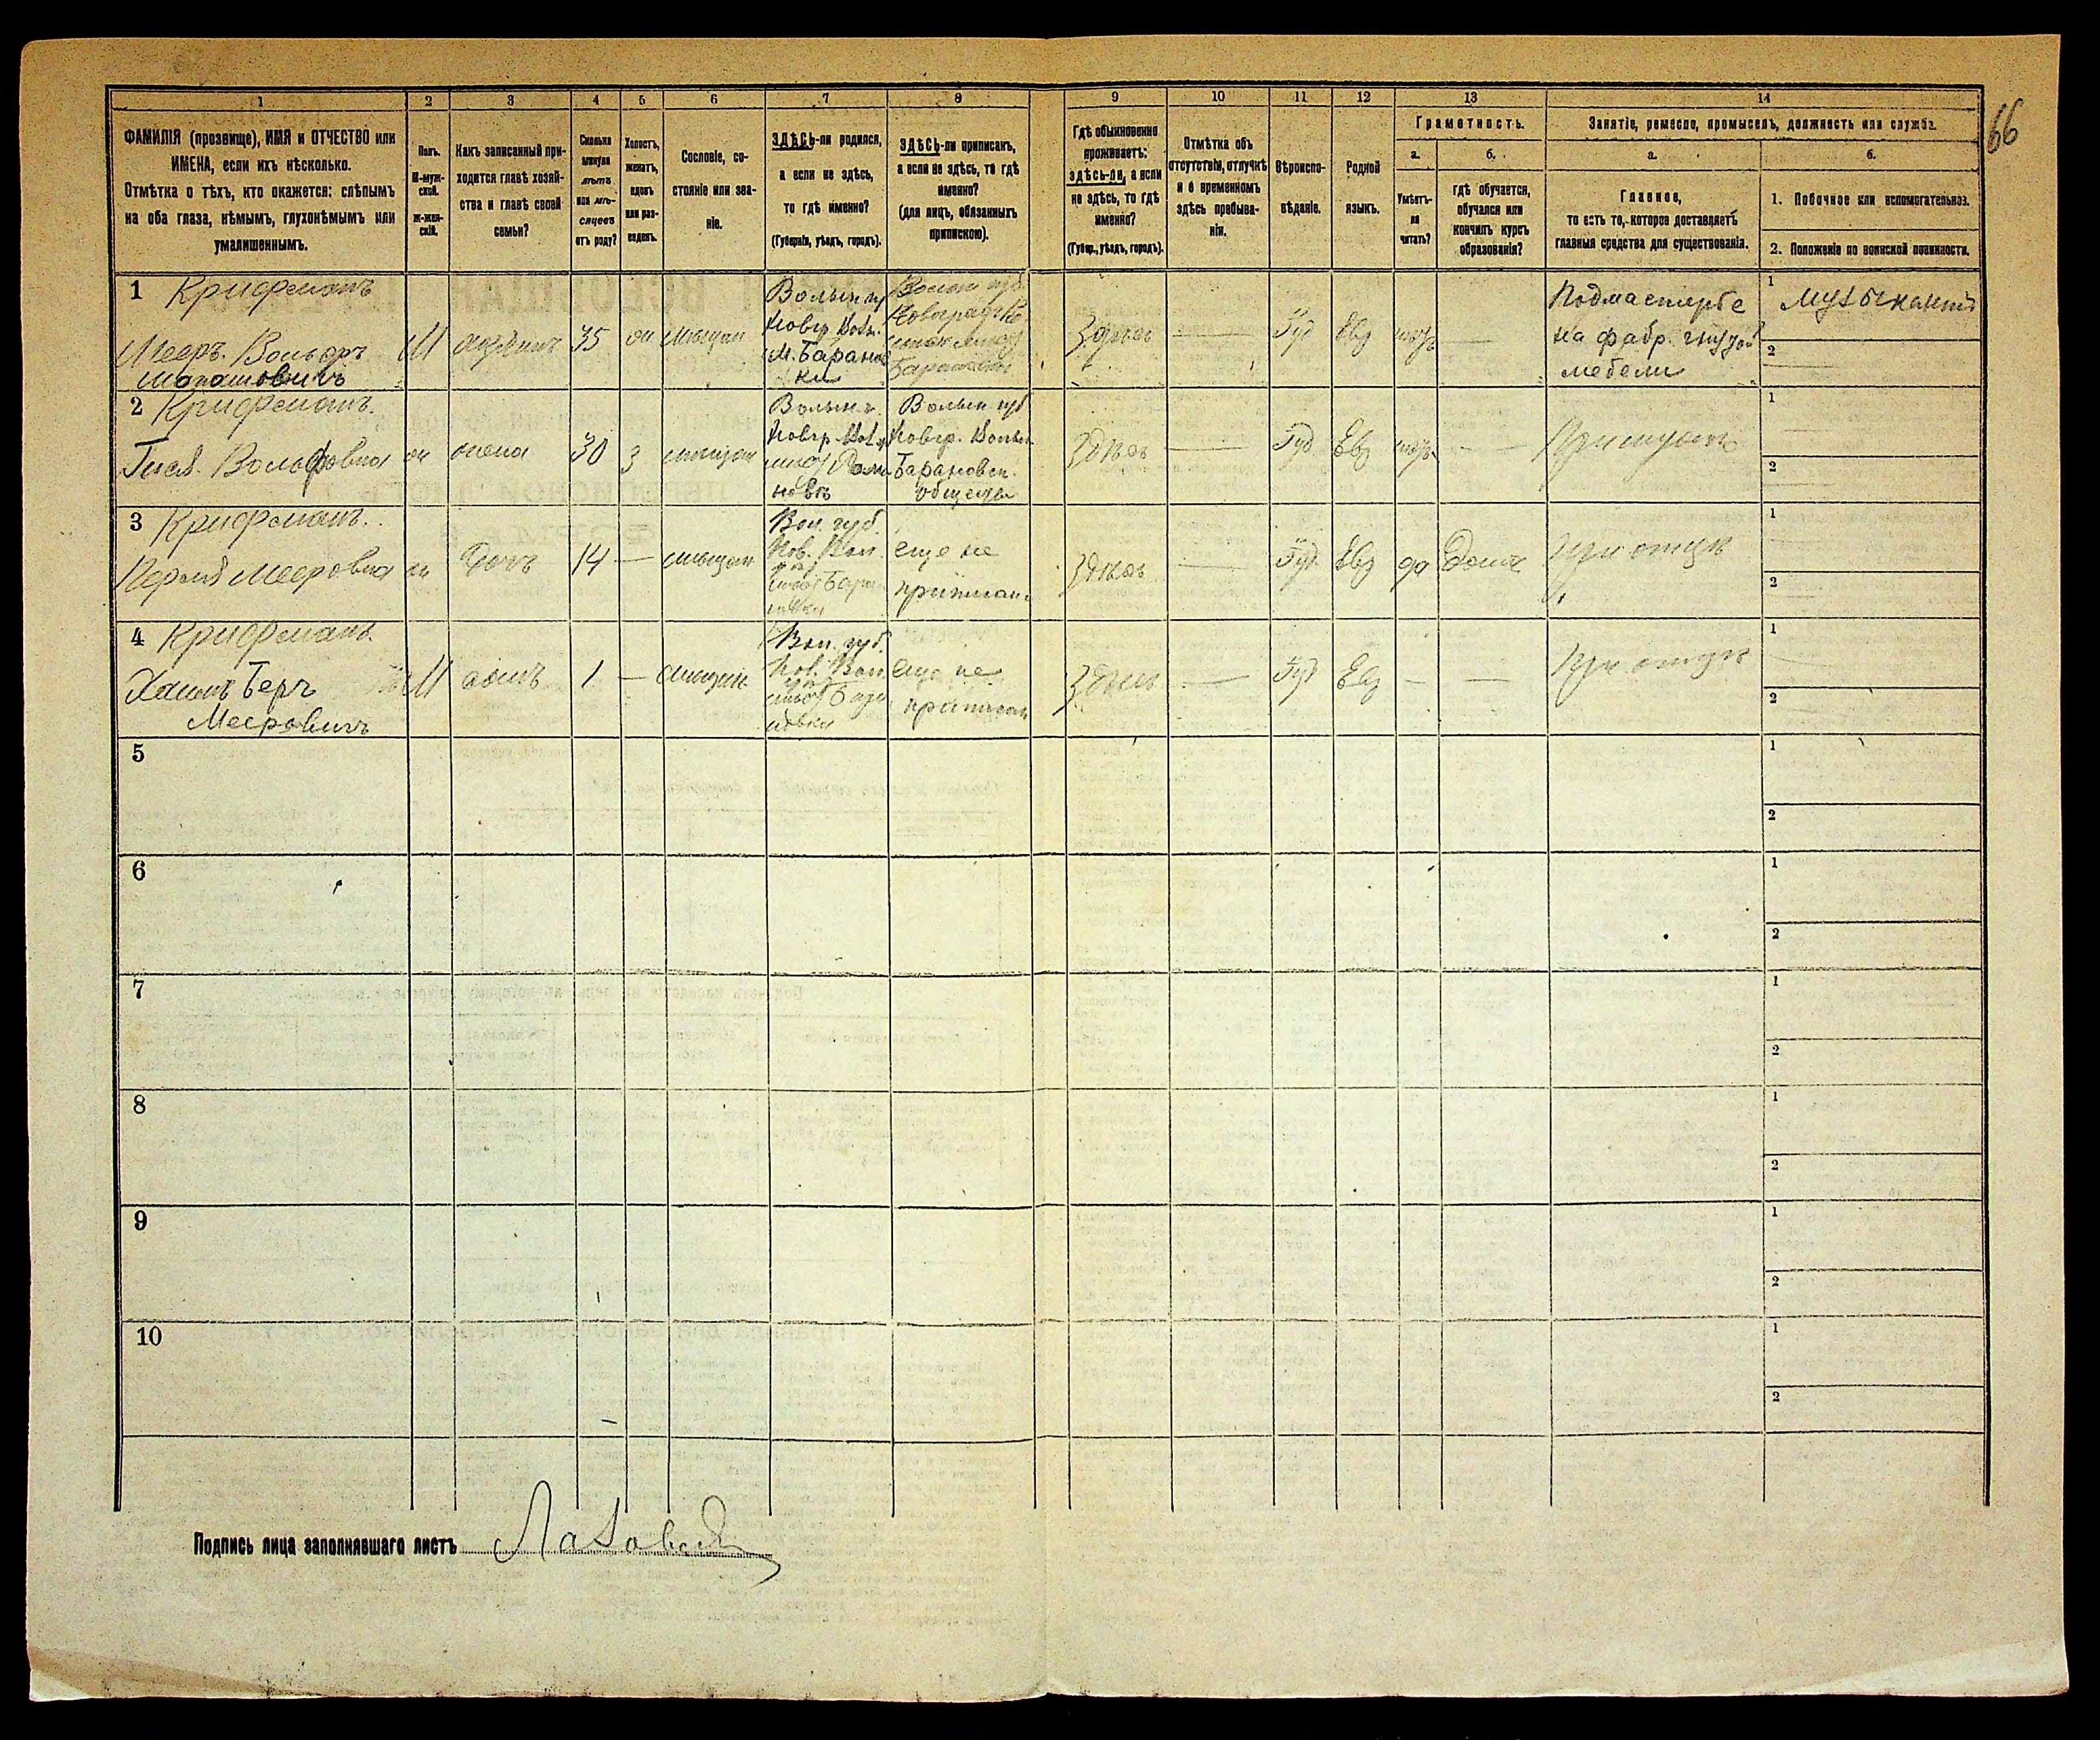 66
1 2 3 4 5 6 7 8 9 10 11 12 13 14
ФАМИЛІЯ (прозвище), ИМЯ и ОТЧЕСТВО или
ИМЕНА, если ихъ нѣсколько.
Отмѣтка о тѣхъ, кто окажется: слѣпымъ
на оба глаза, нѣмымъ, глухонѣмымъ или
умалишеннымъ.
Полъ.
М-муж-
ской.
ж-жен-
скій.
Какъ записанный при-
ходится главѣ хозяй-
ства и главѣ своей
семьи?
Сколько
минуло
лѣтъ
или мѣ-
сяцевъ
отъ роду?
Холостъ,
женатъ,
вдовъ
или раз-
веденъ.
Сословіе, со-
стояніе или зва-
ніе.
ЗДѢСЬ-ли родился,
а если не здѣсь,
то гдѣ именно?
(Губернія, уѣздъ, городъ).
ЗДѢСЬ-ли приписанъ,
а если не здѣсь, то гдѣ
именно?
(для лицъ, обязанныхъ
припискою).
Гдѣ обыкновенно
проживаетъ:
здѣсь-ли, а если
не здѣсь, то гдѣ
именно?
(Губер., уѣздъ, городъ).
Отмѣтка объ
отсутствіи, отлучкѣ
и о временномъ
здѣсь пребыва-
ніи.
Вѣроиспо-
вѣданіе.
Родной
языкъ.
Грамотность.
а. б.
Умѣетъ-
ли
читать?
гдѣ обучается,
обучался или
кончилъ курсъ
образованія?
Занятіе, ремесло, промыселъ, должность или служба.
а. б.
Главное,
то есть то, которое доставляетъ
главныя средства для существованія.
1. Побочное или вспомогательное.
2. Положеніе по воинской повинности.
1 Крифманъ
Мееръ Вольфъ
М 35
Волын гу
Новгр Вол.
М. Баранов
ки
Здѣсь — Іуд Евр —
Подмастерье
на фабр. гнутой
мебели
1 музыкантъ
2
2 Крифманъ
Вольфовна
жена 30 з
Волын г.
Новгр Вол.
Волын губ
Новгр. Волын
Барановск.
общества
Здѣсь — Іуд Евр —
При мужѣ
1
2
3 Крифманъ
Мееровна
дочь 14 —
Вол. губ.
Нов. Вол.
еще не
приписан
Здѣсь — Іуд Евр да Дома
При отцѣ
1
2
4 Крифманъ
Хаимъ Беръ
Мееровичъ
М сынъ 1 —
Вол. губ.
Нов. Вол
еще не
приписан
Здѣсь — Іуд Евр — —
При отцѣ
1
2
5 1
2
6 1
2
7 1
2
8 1
2
9 1
2
10 1
2
Подпись лица заполнявшаго листъ